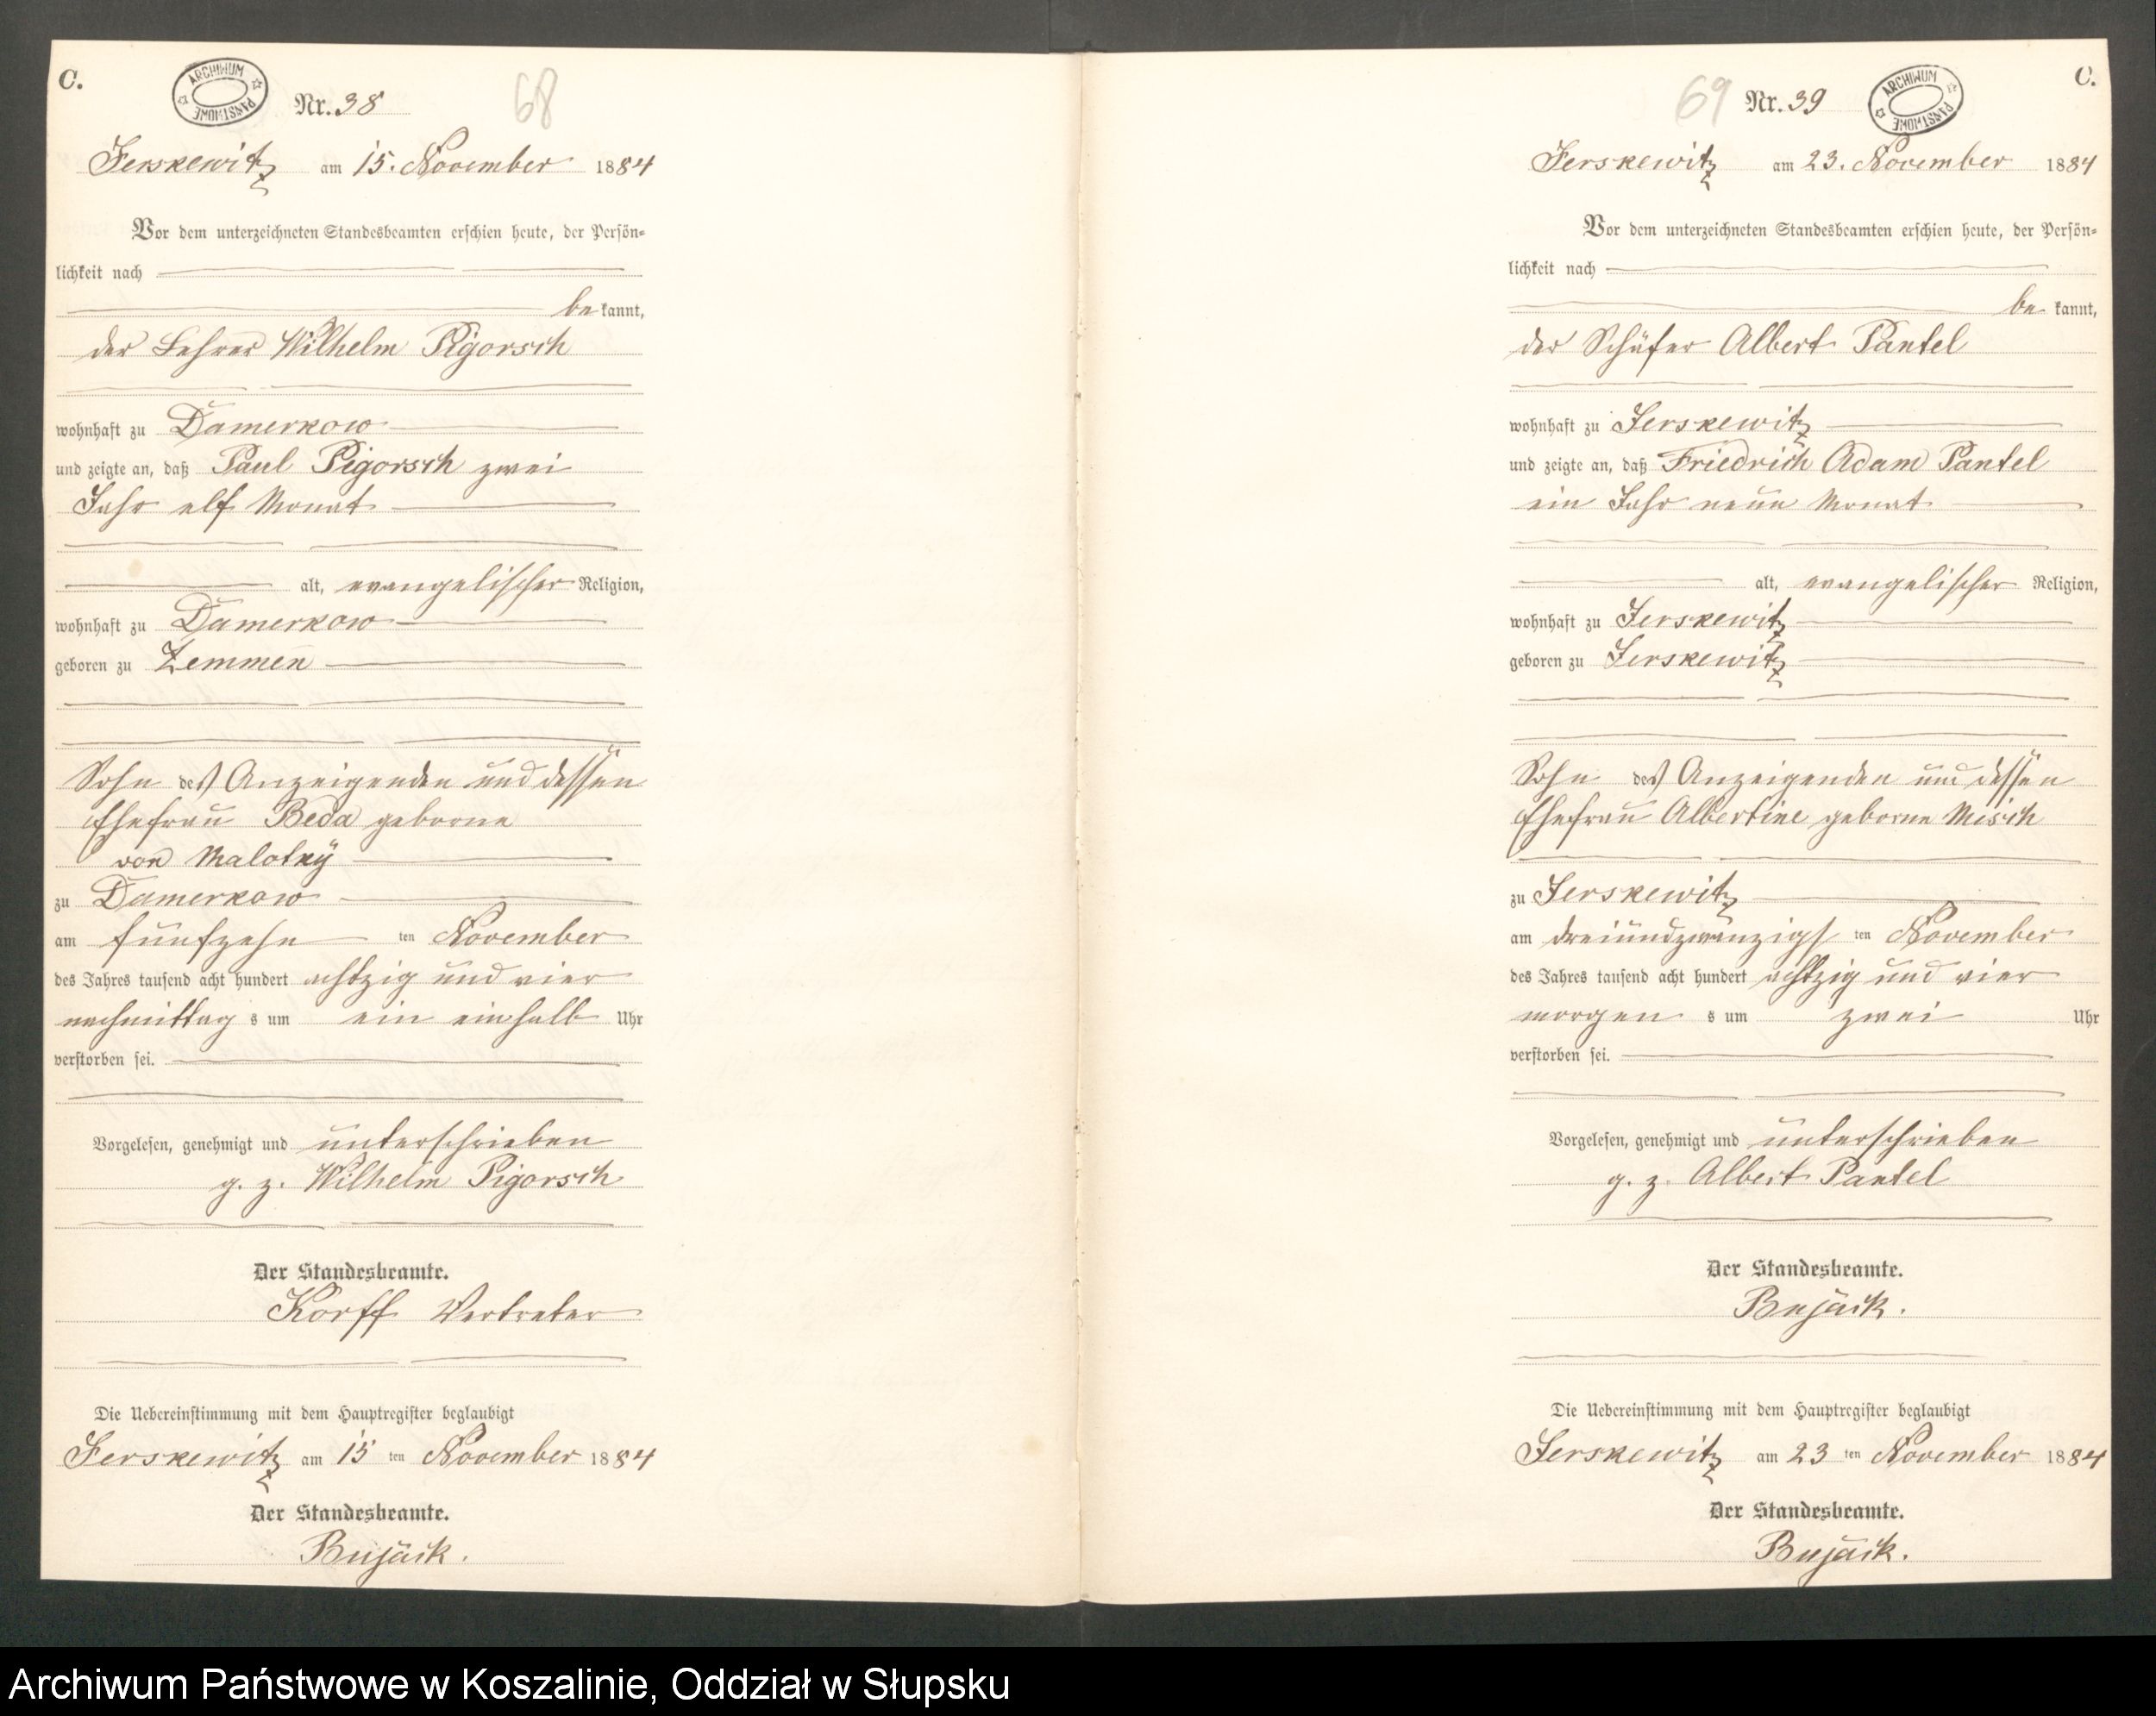 C.
ARCHIWUM PAŃSTWOWE
Nr. 38
68
Jerskewitz am 15. November 1884
Vor dem unterzeichneten Standesbeamten erschien heute, der Persön=
lichkeit nach
be kannt,
der Lehrer Wilhelm Pigorsch
wohnhaft zu Damerkow
und zeigte an, daß Paul Pigorsch zwei
Jahr elf Monat
alt, evangelischer Religion,
wohnhaft zu Damerkow
geboren zu Zemmen
Sohn des Anzeigenden und dessen
Ehefrau Beda geborne
von Malotky
zu Damerkow
am fünfzehn ten November
des Jahres tausend acht hundert achtzig und vier
nachmittag s um ein einhalb Uhr
verstorben sei.
Vorgelesen, genehmigt und unterschrieben
g. z. Wilhelm Pigorsch
Der Standesbeamte.
Korff Vertreter
Die Uebereinstimmung mit dem Hauptregister beglaubigt
Jerskewitz am 15 ten November 1884
Der Standesbeamte.
Bujack.
C.
69
Nr. 39
ARCHIWUM PAŃSTWOWE
Jerskewitz am 23. November 1884
Vor dem unterzeichneten Standesbeamten erschien heute, der Persön=
lichkeit nach
be kannt,
der Schäfer Albert Pantel
wohnhaft zu Jerskewitz
und zeigte an, daß Friedrich Adam Pantel
ein Jahr neun Monat
alt, evangelischer Religion,
wohnhaft zu Jerskewitz
geboren zu Jerskewitz
Sohn des Anzeigenden und dessen
Ehefrau Albertine geborne Misch
zu Jerskewitz
am dreiundzwanzigs ten November
des Jahres tausend acht hundert achtzig und vier
morgen s um zwei Uhr
verstorben sei.
Vorgelesen, genehmigt und unterschrieben
g. z. Albert Pantel
Der Standesbeamte.
Bujack.
Die Uebereinstimmung mit dem Hauptregister beglaubigt
Jerskewitz am 23 ten November 1884
Der Standesbeamte.
Bujack.
Archiwum Państwowe w Koszalinie, Oddział w Słupsku